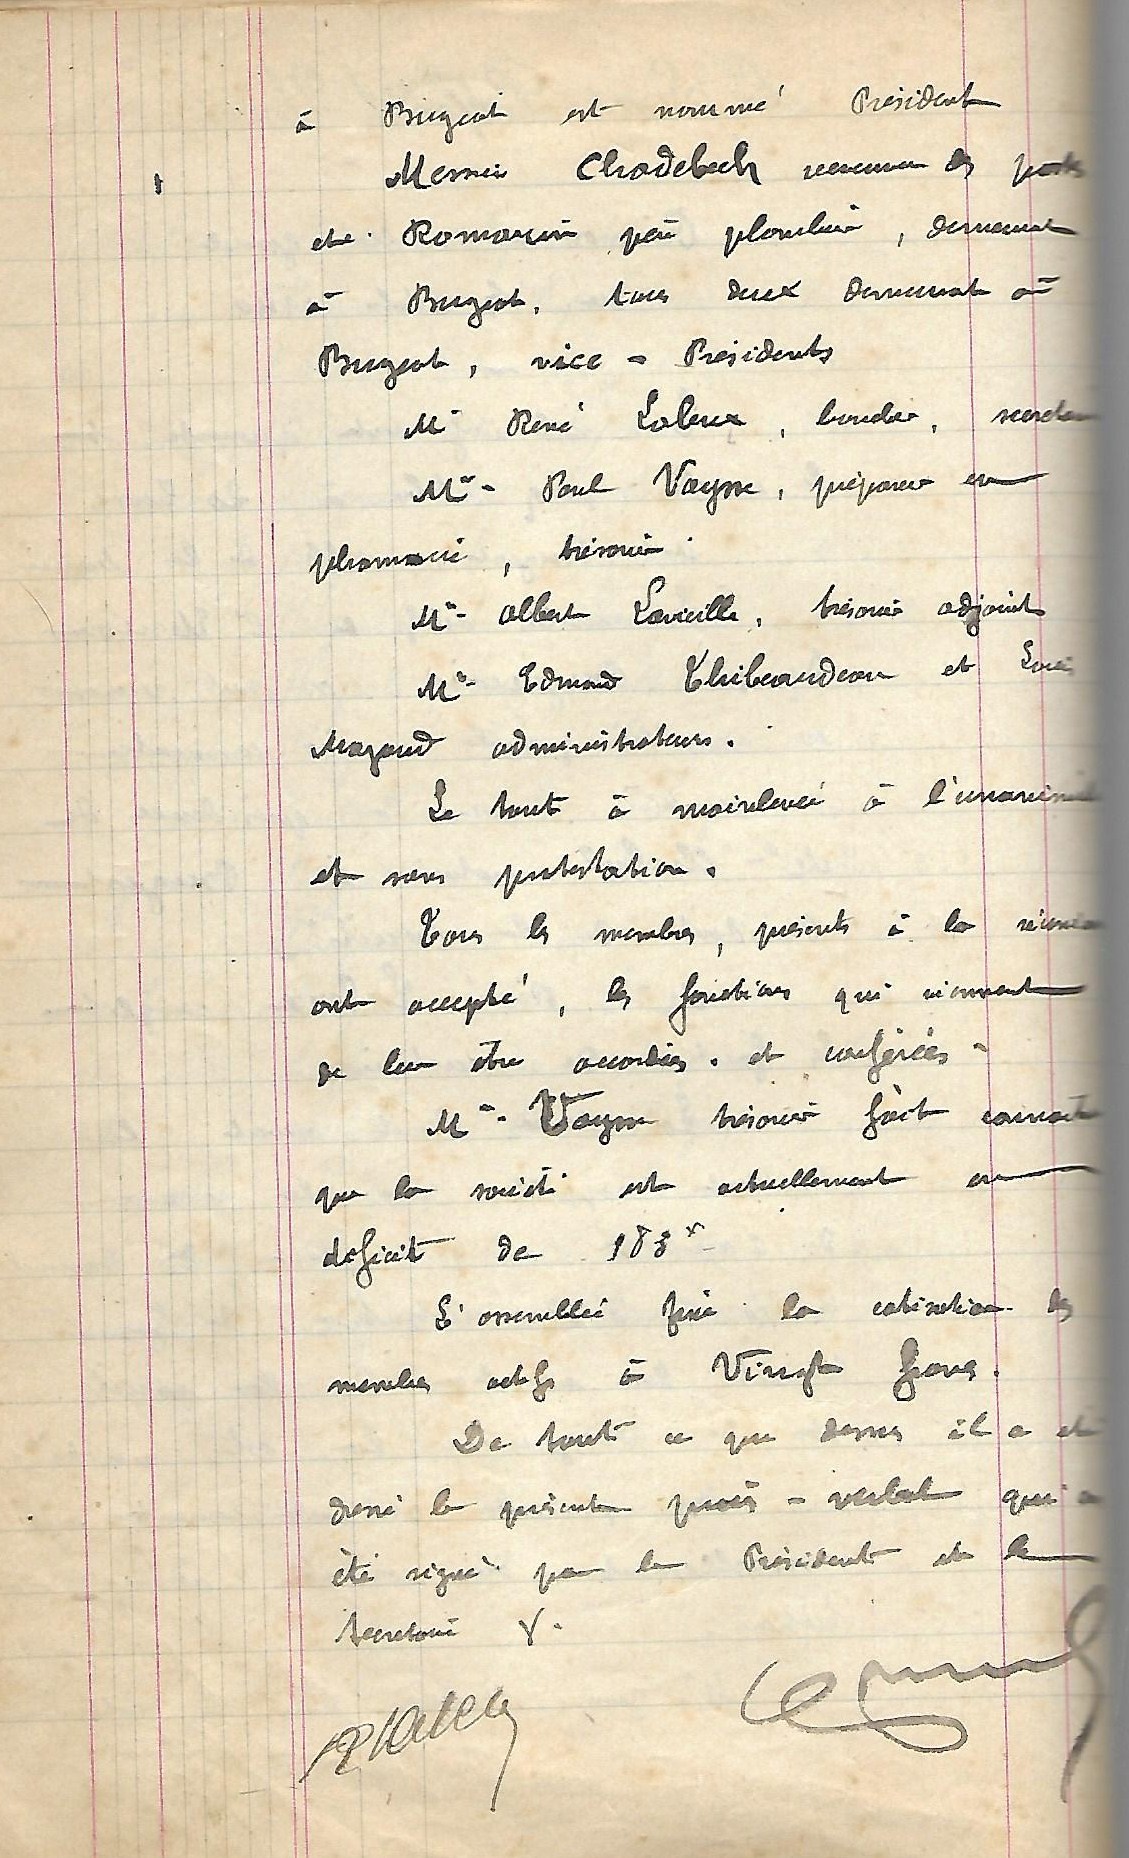 à Bugeat est nommé Président
Messieurs Chadebech receveur des postes
et Romanein père plombier, demeurant
à Bugeat, tous deux demeurant à
Bugeat, vice - Présidents
Mr René Laleux, boucher, secrétaire
Mr - Paul Vaysse, préparateur en
pharmacie, trésorier
Mr - Albert Lavieille, trésorier adjoint
Mr - Edmond Thibeaudeau et Louis
Magaud administrateurs.
Le tout à mainlevée à l'unanimité
et sans protestation.
Tous les membres, présents à la réunion
ont accepté, les fonctions qui viennent
de leur être accordées. et conférées -
Mr - Vaysse trésorier fait connaître
que la société est actuellement en
déficit de 183
L'assemblée fixe la cotisation des
membres actifs à Vingt francs.
De tout ce que dessus il a été
dressé le présent procès - verbal qui a
été signé par le Président et le
Secrétaire